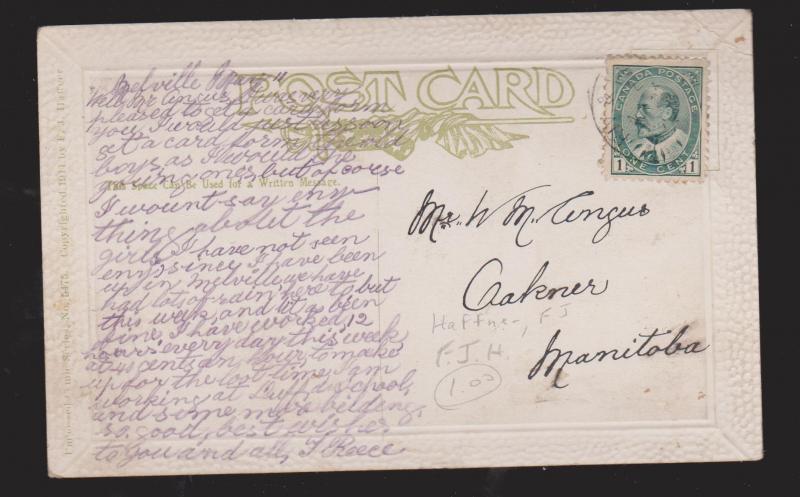 Melville
POST CARD
Well Mr Angus I was very
pleased to get a card from
you. I would just as soon
get a card form the old
boys as I would the
young ones but of corse
This Space Can Be Used for a Written Message.
I wount say eny
thing about the
girls I have not seen
enny since I have been
up in Melville we have
had lots of rain here to but
this week and it as been
fine I have worked 12
hours every day this week
at 45 cents an hour to make
up for the lost time. I am
working at school
and some more bilding
so good, best wishes
to you and all, J Reece
CANADA POSTAGE
1 ONE CENT 1
Mr. W M. Angus
Oakner
Manitoba
Haffner, F J
F. J. H.
1.00
Copyrighted 1911 by F. J. Haffner
Series No. 5475.